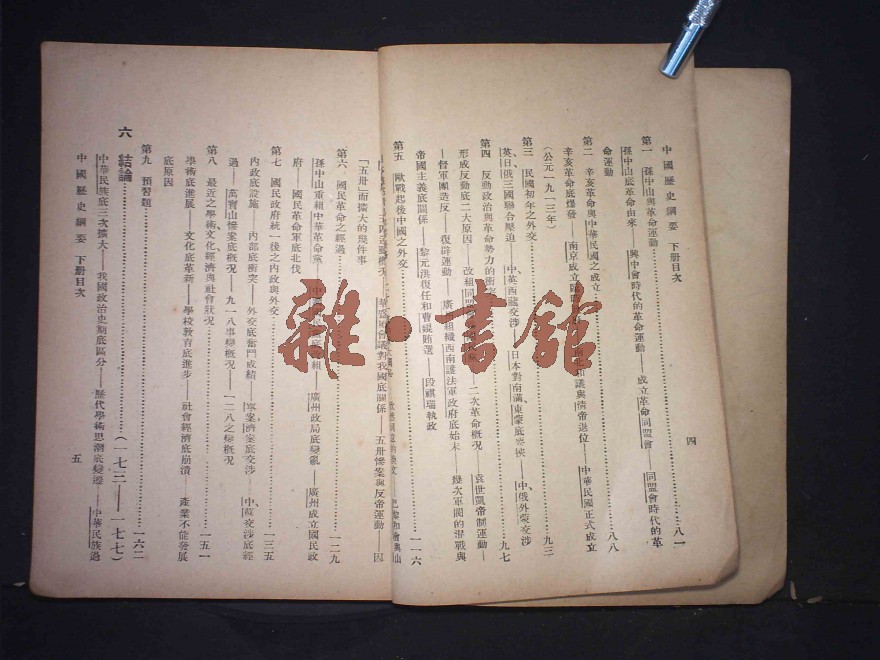 中國歷史綱要 下册目次
四
第一 孫中山與革命運動……八一
孫中山底革命由來——興中會時代的革命運動——成立革命同盟會——同盟會時代的革
命運動
第二 辛亥革命與中華民國之成立……八八
辛亥革命底爆發——南京成立臨時 和議與清帝退位——中華民國正式成立
(公元一九一三年)
第三 民國初年之外交……九三
英、日、俄三國聯合壓迫——中、英西藏交涉——日本對南滿、東蒙底要挾——中、俄外蒙交涉
第四 反動政治與革命勢力的衝……九七
形成反動底二大原因——改組同盟 二次革命概况——袁世凱帝制運動—
—督軍團造反——復辟運動——廣 組織西南護法軍政府底始末——幾次軍閥的混戰與
帝國主義底關係——黎元洪復任和曹錕賄選——段祺瑞執政
第五 歐戰起後中國之外交……一一六
巴黎和會與山
會議對我國底關係——五卅慘案與反帝運動——因
「五卅」而擴大的幾件事
第六 國民革命之經過……一二九
孫中山重組中華革命黨——中 組——廣州政局底變亂——廣州成立國民政
府——國民革命軍底北伐
第七 國民政府統一後之內政與外交……一三五
內政底設施——內部底衝突——外交底奮鬥成績——寧案、濟案底交涉——中、蘇交涉底經
過——萬寶山慘案底概况——九一八事變概况——一二八之變概况
第八 最近之學術文化、經濟與社會狀况……一五一
學術底進展——文化底革新——學校教育底進步——社會經濟底崩潰——產業不能發展
底原因
第九 預習題……一六二
六 結論……(一七三——一七七)
中華民族底三次擴大——我國政治史期底區分——歷代學術思潮底變遷——中華民族過
中國歷史綱要 下册目次
五
雜·書館